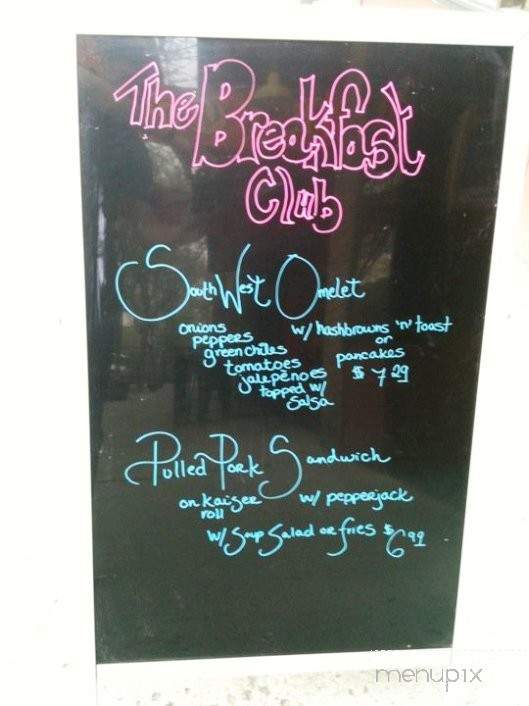 The Breakfast
Club
SouthWest Omelet
onions
peppers
green chiles
tomatoes
jalepenoes
topped w/
Salsa
w/ hashbrowns 'n' toast
or
pancakes
$ 7 29
Pulled Pork Sandwich
on kaizer
roll
w/ pepperjack
w/ Soup Salad or fries $6 99
menupix